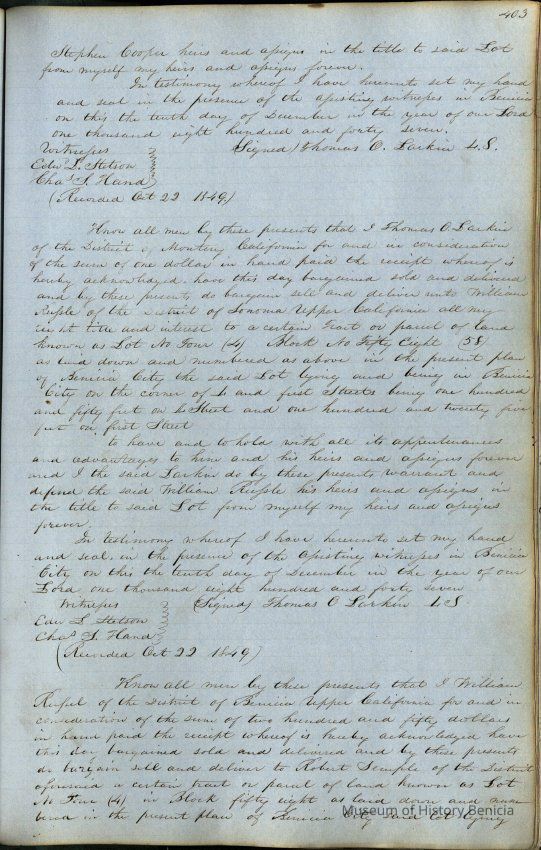 403
Stephen Cooper heirs and assigns in the title to said Lot
from myself my heirs and assigns forever.
In testimony whereof I have hereunto set my hand
and seal in the presence of the attesting witnesses in Benicia
on this the tenth day of December in the year of our Lord
one thousand eight hundred and forty seven.
Witnesses (Signed) Thomas O. Larkin L.S.
Edwd L. Stetson
Chas. S. Hand
(Recorded Oct 22 1849)
Know all men by these presents that I Thomas O. Larkin
of the District of Monterey California for and in consideration
of the sum of one dollar in hand paid the receipt whereof is
hereby acknowledged. have this day bargained sold and delivered
and by these presents do bargain sell and deliver unto William
of the District of Sonoma Upper California all my
right title and interest to a certain Tract or parcel of land
known as Lot No Four (4) Block No Fifty Eight (58)
as laid down and numbered as above in the present plan
of Benicia City the said Lot lying and being in Benicia
City on the corner of and first Streets being one hundred
and fifty feet on Street and one hundred and twenty five
feet on first Street
to have and to hold with all its appurtenances
and advantages to him and his heirs and assigns forever
and I the said Larkin do by these presents warrant and
defend the said William his heirs and assigns in
the title to said Lot from myself my heirs and assigns
forever.
In testimony whereof I have hereunto set my hand
and seal in the presence of the attesting witnesses in Benicia
City on this the tenth day of December in the year of our
Lord one thousand eight hundred and forty seven
Witnesses (Signed) Thomas O Larkin L.S
Edw L Stetson
Chas. S. Hand
(Recorded Oct 22 1849)
Know all men by these presents that I William
of the District of Benicia Upper California for and in
consideration of the sum of two hundred and fifty dollars
in hand paid the receipt whereof is hereby acknowledged have
this day bargained sold and delivered and by these presents
do bargain sell and deliver to Robert Semple of the District
aforesaid a certain tract or parcel of land known as Lot
No Four (4) in Block fifty eight as laid down and num-
bered in the present plan of Benicia City said Lot lying
Museum of History Benicia